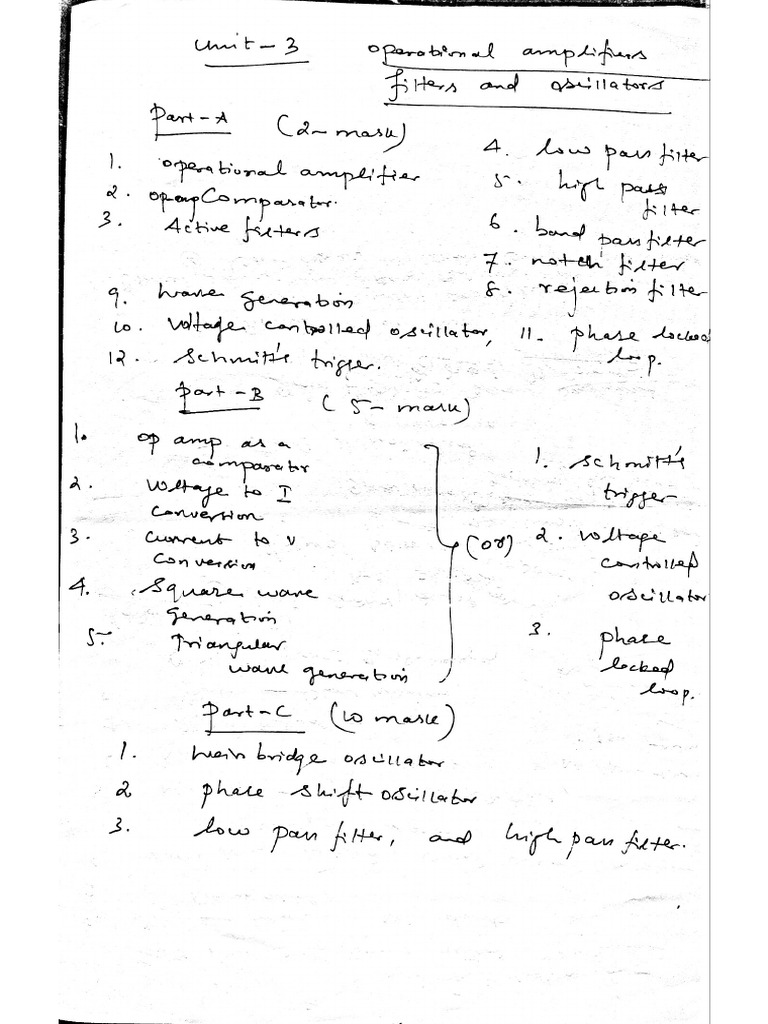 Unit-3 operational amplifiers
filters and oscillators
Part-A (2-mark)
1. operational amplifier
2. opamp Comparator.
3. Active filters
4. low pass filter
5. high pass
filter
6. band pass filter
7. notch filter
8. rejection filter
9. wave generation
10. voltage controlled oscillator, 11. phase locked
loop.
12. Schmitt's trigger.
Part-B (5-mark)
1. op amp as a
comparator
2. voltage to I
conversion
3. current to v
conversion
4. Square wave
generation
5. Triangular
wave generation
(or)
1. Schmitt's
trigger
2. voltage
controlled
oscillator
3. phase
locked
loop.
Part-C (10 mark)
1. wein bridge oscillator
2 phase shift oscillator
3. low pass filter, and high pass filter.